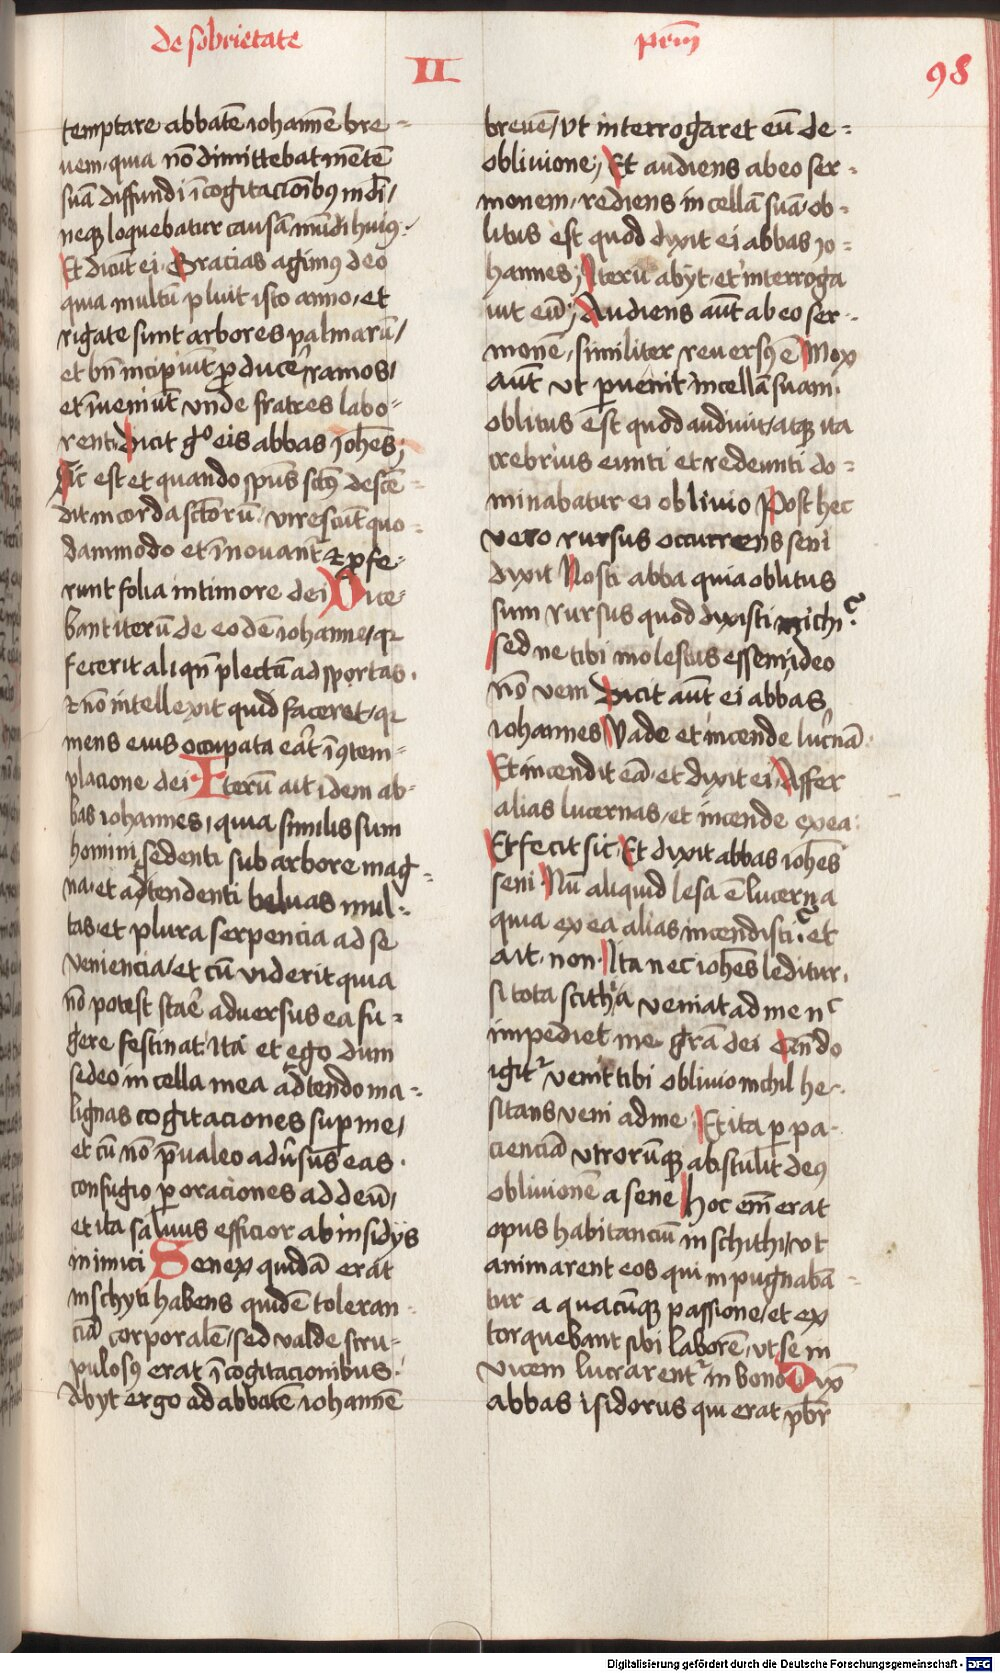 de sobrietate
prm̄
II
98
temptare abbatē iohannē bre=
uem, quia nō dimittebat mētē
suā diffundi ī cogitacionibus mdi/
neqz loquebatur causā mūdi huius.
Et dicūt ei Gracias agimus deo
quia multū pluit isto anno, et
rigate sunt arbores palmarū/
et bn̄ incipiūt producē ramos/
et īueniūt vnde fratres labo=
rent Dicit go eis abbas ioh̄es;
Sic est et quando sp̄us sctūs descē=
dit in corda sctōrū virescūt quo=
dammodo et īnouant̄ et profe=
runt folia in timore dei Dice=
bant iterū de eodē iohanne, qr
fecerit aliqn̄ plectā ad sportas.
et nō intellexit quid faceret, qr
mens eius occupata eāt ī cōtem=
placione dei Iterū ait idem ab=
bas iohannes, quia similis sum
homini sedenti sub arbore mag=
na, et adtendenti beluas mul=
tas, et plura serpencia ad se
veniencia, et cū viderit quia
nō potest staē aduersus ea fu=
gere festinat Ita et ego dum
sedeo in cella mea adtendo ma=
lignas cogitaciones super me/
et cū nō p̄ualeo adūsus eas.
confugio per oraciones ad deū/
et ita saluus efficior ab insidijs
inimici Senex quidā erat
in schyti habens quidē toleran=
ciā corporalē, sed valde scru=
pulosus erat ī cogitacionibus.
Abyt ergo ad abbatē iohannē
breuē, vt interrogaret eū de=
obliuione; Et audiens ab eo ser=
monem, rediens in cellā suā, ob=
litus est quod dixit ei abbas io=
hannes; Iterū abyt, et interroga
uit eū; Audiens aūt ab eo ser=
monē, similiter reuersus ē Mox
aūt vt peruenit in cellā suam.
oblitus est quod audiuit, atqz ita
crebrius eunti et redeunti do=
minabatur ei obliuio Post hec
vero rursus occurrens seni
dixit Nosti abba quia oblitus
sum rursus quod dixisti michi?
sed ne tibi molestus essem, ideo
nō veni Dicit aūt ei abbas
iohannes Vade et incende lucernā
Et incendit eā, et dixit ei Affer
alias lucernas, et incende ex ea
Et fecit sic, Et dixit abbas ioh̄es
seni Nū aliquid lesa ē lucerna
quia ex ea alias incendisti? et
ait, non Ita nec ioh̄es leditur,
si tota scithia veniat ad me nc
impediet me grā dei Quādo
igitr venit tibi obliuio nichil he=
sitans veni ad me Et ita per pa=
cienciā vtrorūqz abstulit deus
obliuionē a sene Hoc em̄ erat
opus habitanciū in schithi, vt
animarent eos qui inpugnabā=
tur a quacūqz passione, et ex
torquebant sibi laborē, vt se in
vicem lucrarentr in bono Dix̄
abbas isidorus qui erat p̄br
Digitalisierung gefördert durch die Deutsche Forschungsgemeinschaft - DFG